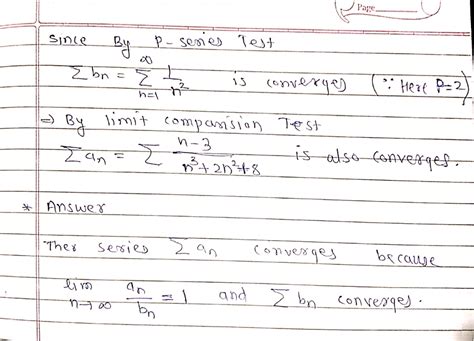 Page
Since By P-series Test
∑ bn = ∞∑n=1 1/n² is converges (∵ Here P=2)
⇒ By limit comparision Test
∑ an = ∑ n-3/n³+2n²+8 is also converges.
* Answer
Ther series ∑ an converges because
lim n→∞ an/bn = 1 and ∑ bn converges.